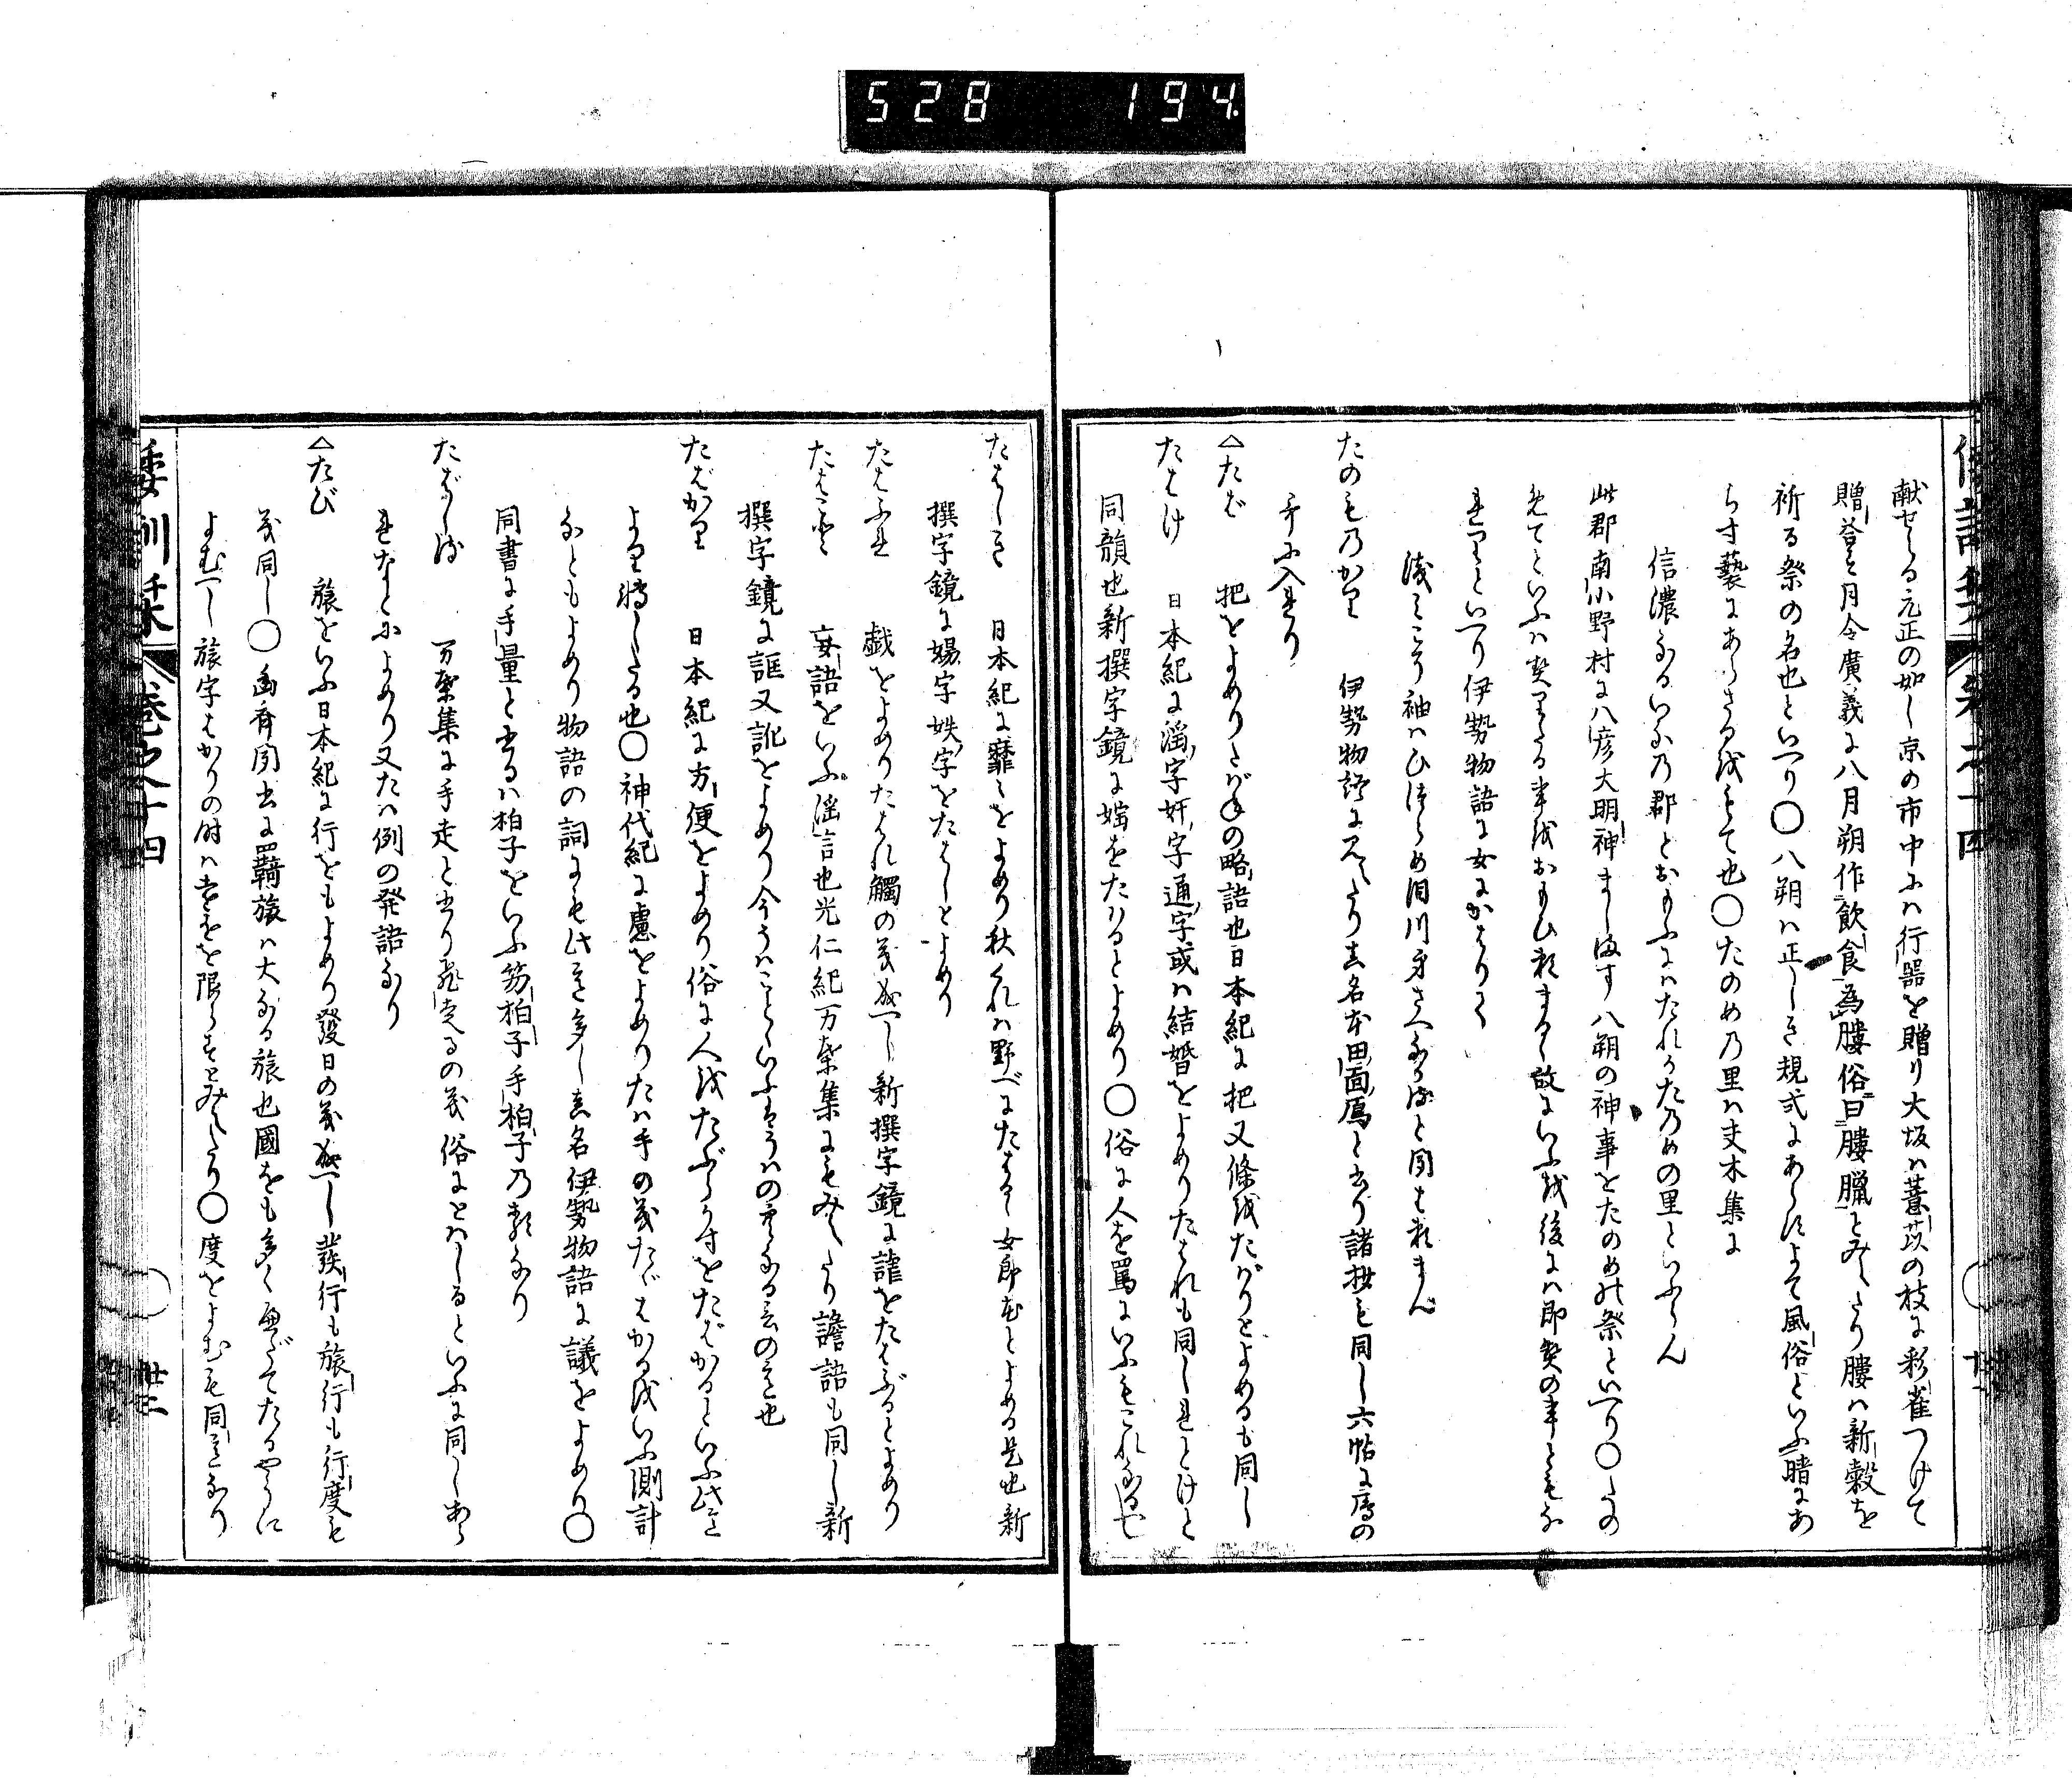 528 194
献せらる元正の如し京の市中にハ行器を贈り大坂ハ薏苡の枝に彩雀つけて
贈答す月令廣義に八月朔作飲食為膢俗曰膢臘とみえたり膢ハ新穀を
祈る祭の名也といへり○八朔ハ正しき規式にあらによて風俗といふ晴にあ
らす藝にあらさるをもて也○たのめの里ハ夫木集に
信濃なるいなの郡とおもふにハたれかたのめの里といふらん
此郡南小野村に八彦大明神まします八朔の神事をたのめの祭といへり○たの
めてといふハ契りたる事をおもひ
れりといへり伊勢物語に女かはりて
浅みこそ袖ハひつらめ泪川身さへなかると聞はたのまん
たのものかり　伊勢物語に見えたり真名本田面鳫と書り諸抄も同し六帖に鳫の
弖に入れり
△たば　把をよめりたばねの略語也日本紀に把又條をたばりとよめるも同し
たはけ　日本紀に淫字奸字通字或ハ結婚をよめりたはれも同しれとけと
同韻也新撰字鏡に婬をたハるとよめり○俗に人を罵にいふもこれなるへし
たはしき　日本紀に靡々をよめり秋くれハ野べにたはるゝ女郎花とよめる是也新
撰字鏡に婸字妷字をたはしとよめり
たはふれ　戯をよめりたはれ觸の義成へし新撰字鏡に謔をたはぶるとよめり
たはこと　妄語をいふ淫言也光仁紀万葉集にもみえたり譫語も同し新
撰字鏡に誆又訛をよめり今うはことといふ
たばかり　日本紀に方便をよめり俗に人をたぶらかすをたばかるといふ此意
より轉したる也○神代紀に慮をよめりたハ手の義たばはかるをいふ測計
なともよめり物語の詞にも此意多し真名伊勢物語に議をよめり○
同書に手量と書るハ柏子をいふ笏柏子手柏子の類なり
たばしる　万葉集に手走と書り飛走るの義俗にとハしるといふに同しあら
れなとによめり又たハ例の発語なり
△たび　旅をいふ日本紀に行をもよめり發日の義成へし發行も旅行も行度も
義同し○幽斎聞書に羇旅ハ大なる旅也國をも多くへだてたるやうに
よむへし旅字はかりの時ハさをを限らすとみえたり○度をよむも同意なり
倭訓栞　巻之十四　丗三